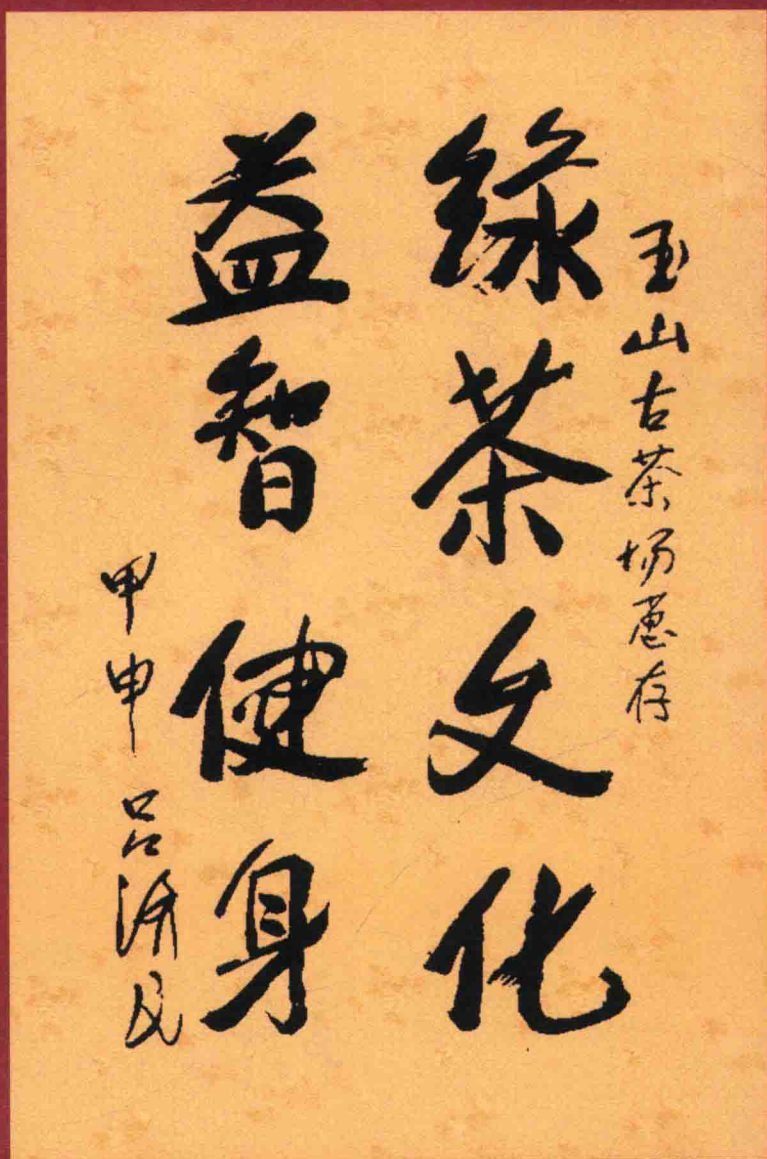 玉山古茶场惠存
緑茶文化
益智健身
甲申 吕济民